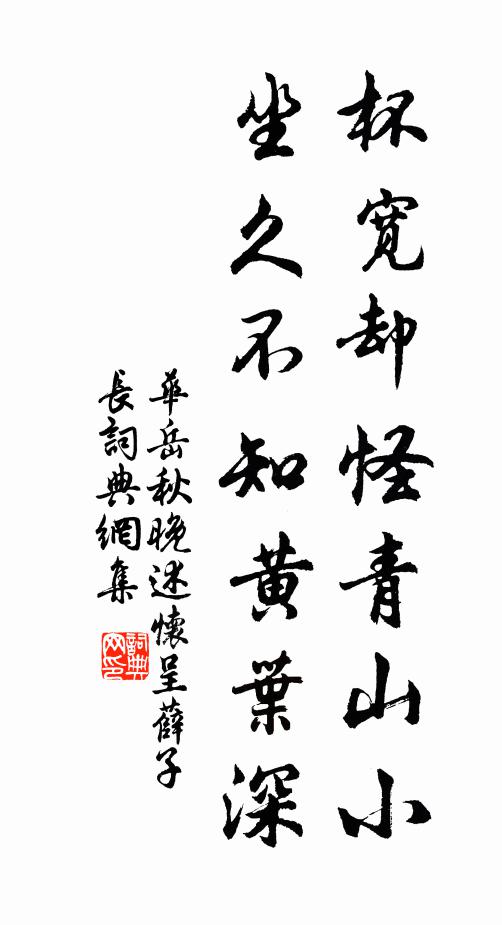 杯寬却怪青山小
坐久不知黃葉深
華岳秋晚述懷呈薛子
長詞典網集
詞典
网印